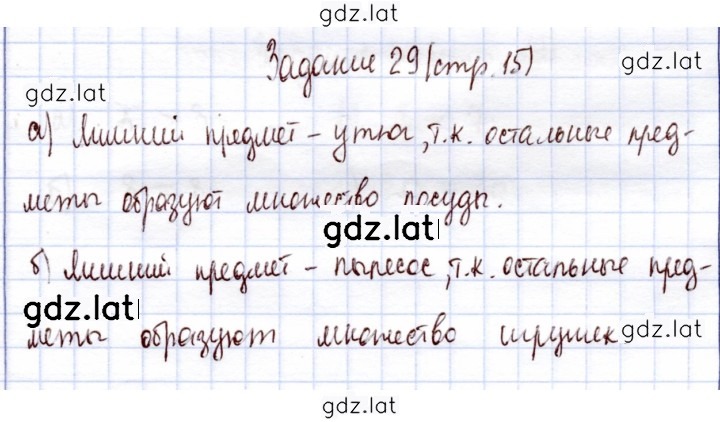 gdz.lat
Задание 29 (стр. 15)
gdz.lat
gdz.lat
а) Лишний предмет - утюг, т.к. остальные пред-
меты образуют множество посуды.
gdz.lat
б) Лишний предмет - пылесос, т.к. остальные пред-
gdz.lat
меты образуют множество игрушек
gdz.lat
gdz.lat